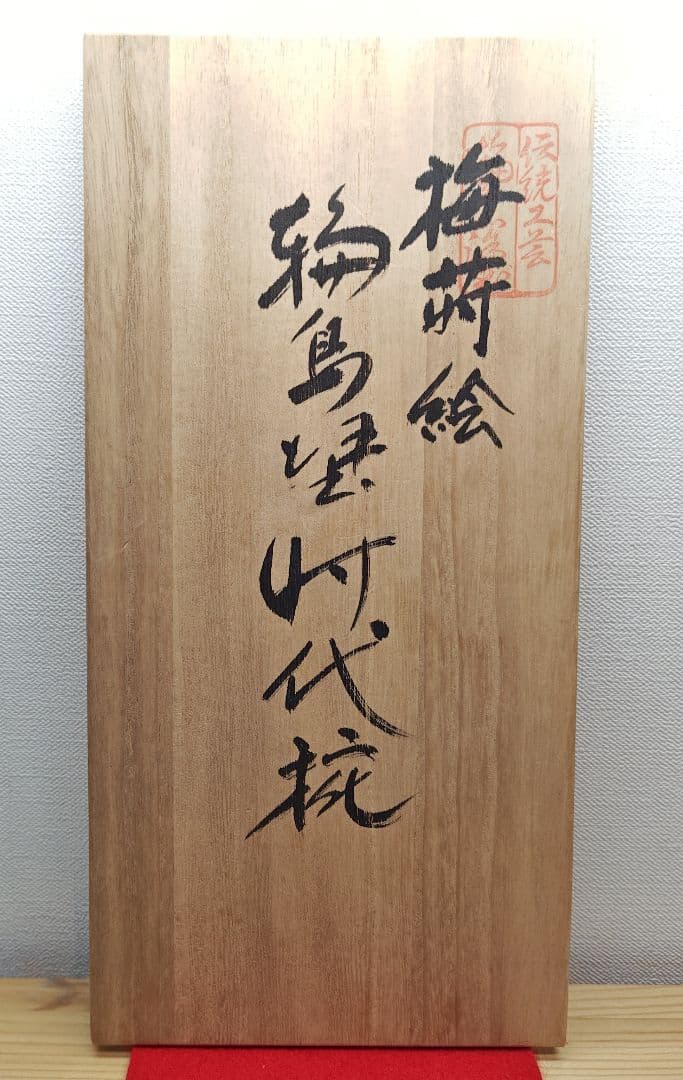 伝統工芸
梅蒔絵
輪島塗時代椀